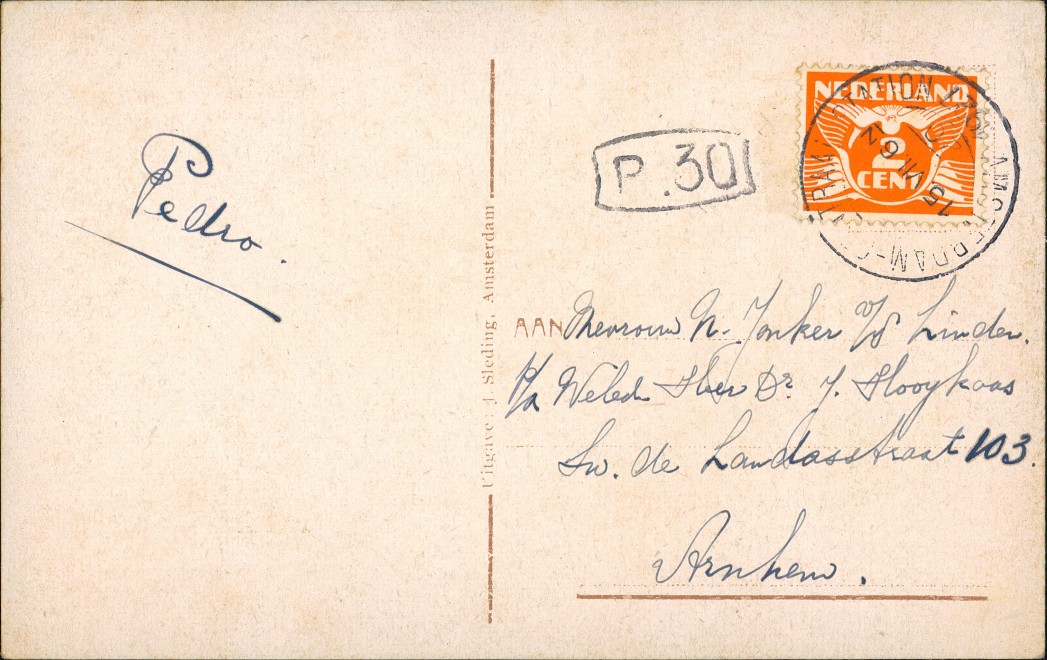 Pedro.
Uitgave: J. Sleding, Amsterdam
P.30
NEDERLAND
2
CENT
STATION
AMSTERDAM-C
AAN Mevrouw N. Jonker v/d Linden.
p/a Weled. Heer Dr. J. Hooykaas
Sw. de Landasstraat 103.
Arnhem.